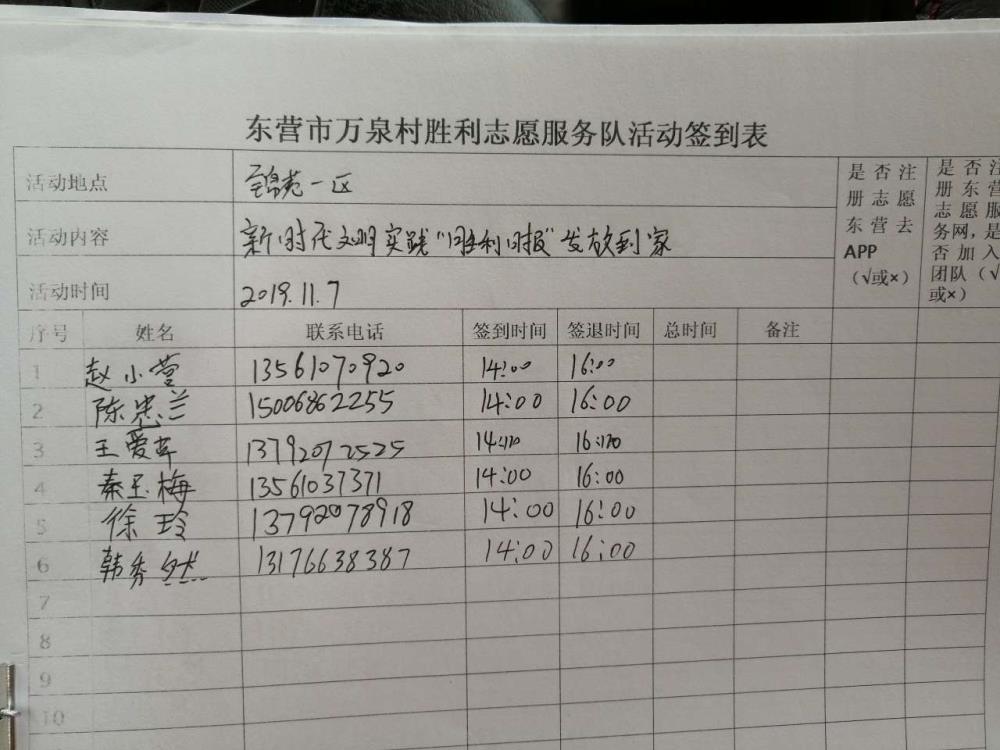 东营市万泉村胜利志愿服务队活动签到表
活动地点 锦苑一区
是否注册志愿东营去APP（√或×）
是否注册东营志愿服务网，是否加入团队（√或×）
活动内容 新时代文明实践“胜利日报”发放到家
活动时间 2019.11.7
序号 姓名 联系电话 签到时间 签退时间 总时间 备注
1 赵小营 13561070920 14:00 16:00
2 陈忠兰 15006862255 14:00 16:00
3 王爱芹 13792072525 14:00 16:00
4 秦玉梅 13561037371 14:00 16:00
5 徐玲 13792078918 14:00 16:00
6 韩秀然 13176638387 14:00 16:00
7
8
9
10